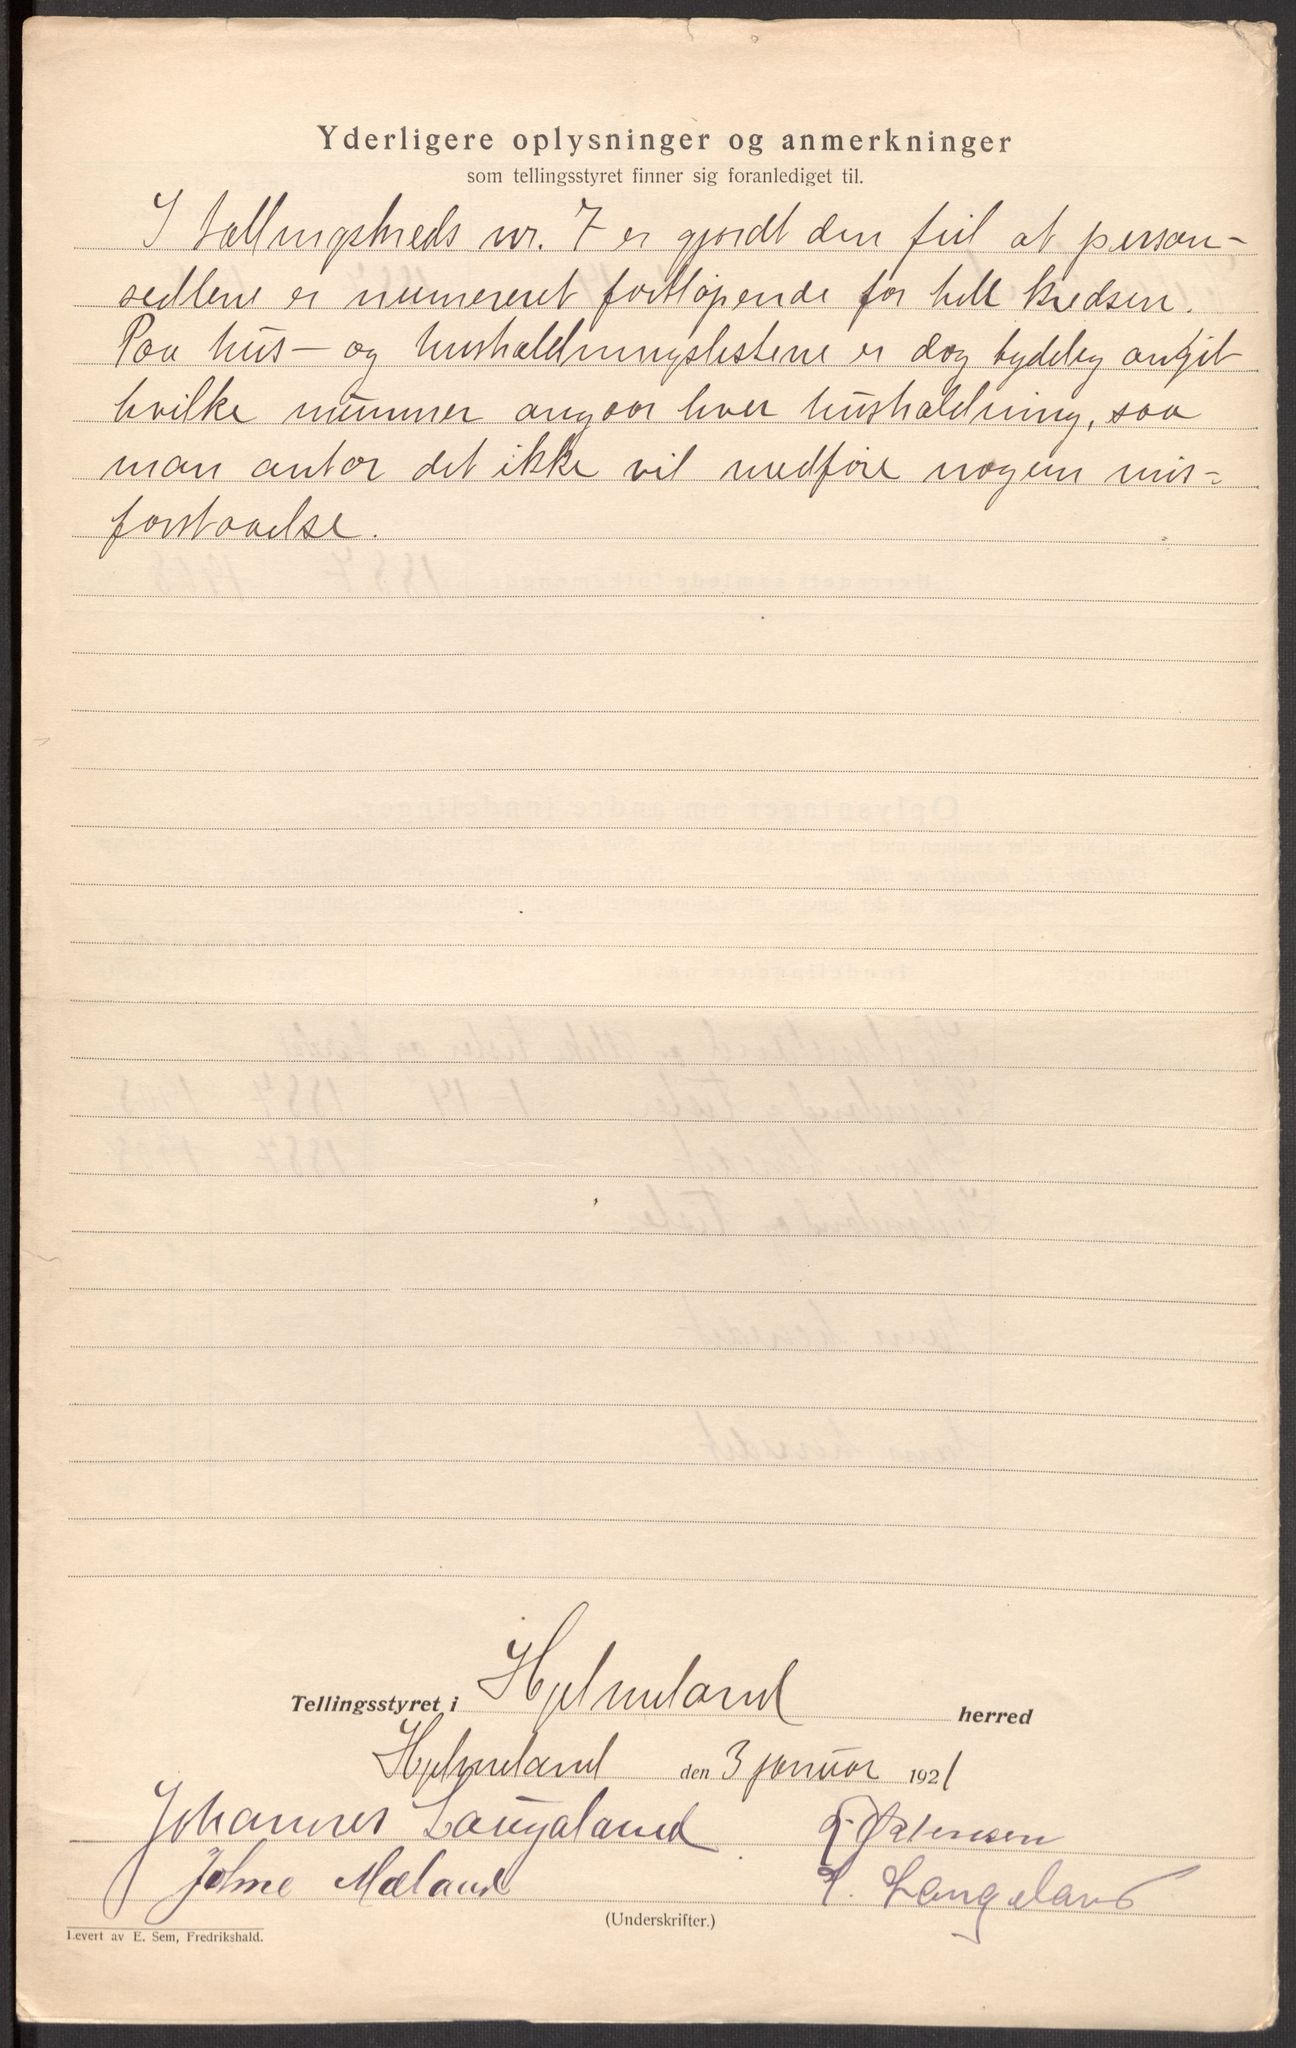 Yderligere oplysninger og anmerkninger
som tellingsstyret finner sig foranlediget til.
I tællingskreds nr. 7 er gjordt den feil at person-
sedlene er numereret fortløpende for hele kredsen.
Paa hus- og husholdningslistene er dog tydelig angit
hvilke nummer angaar hver husholdning, saa
man antar det ikke vil medføre nogen mis-
forstaaelse.
Tellingsstyret i Hjelmeland herred
Hjelmeland den 3 januar 1921
Johannes Laugaland
Johne Mæland L. Langeland
(Underskrifter.)
Levert av E. Sem, Fredrikshald.